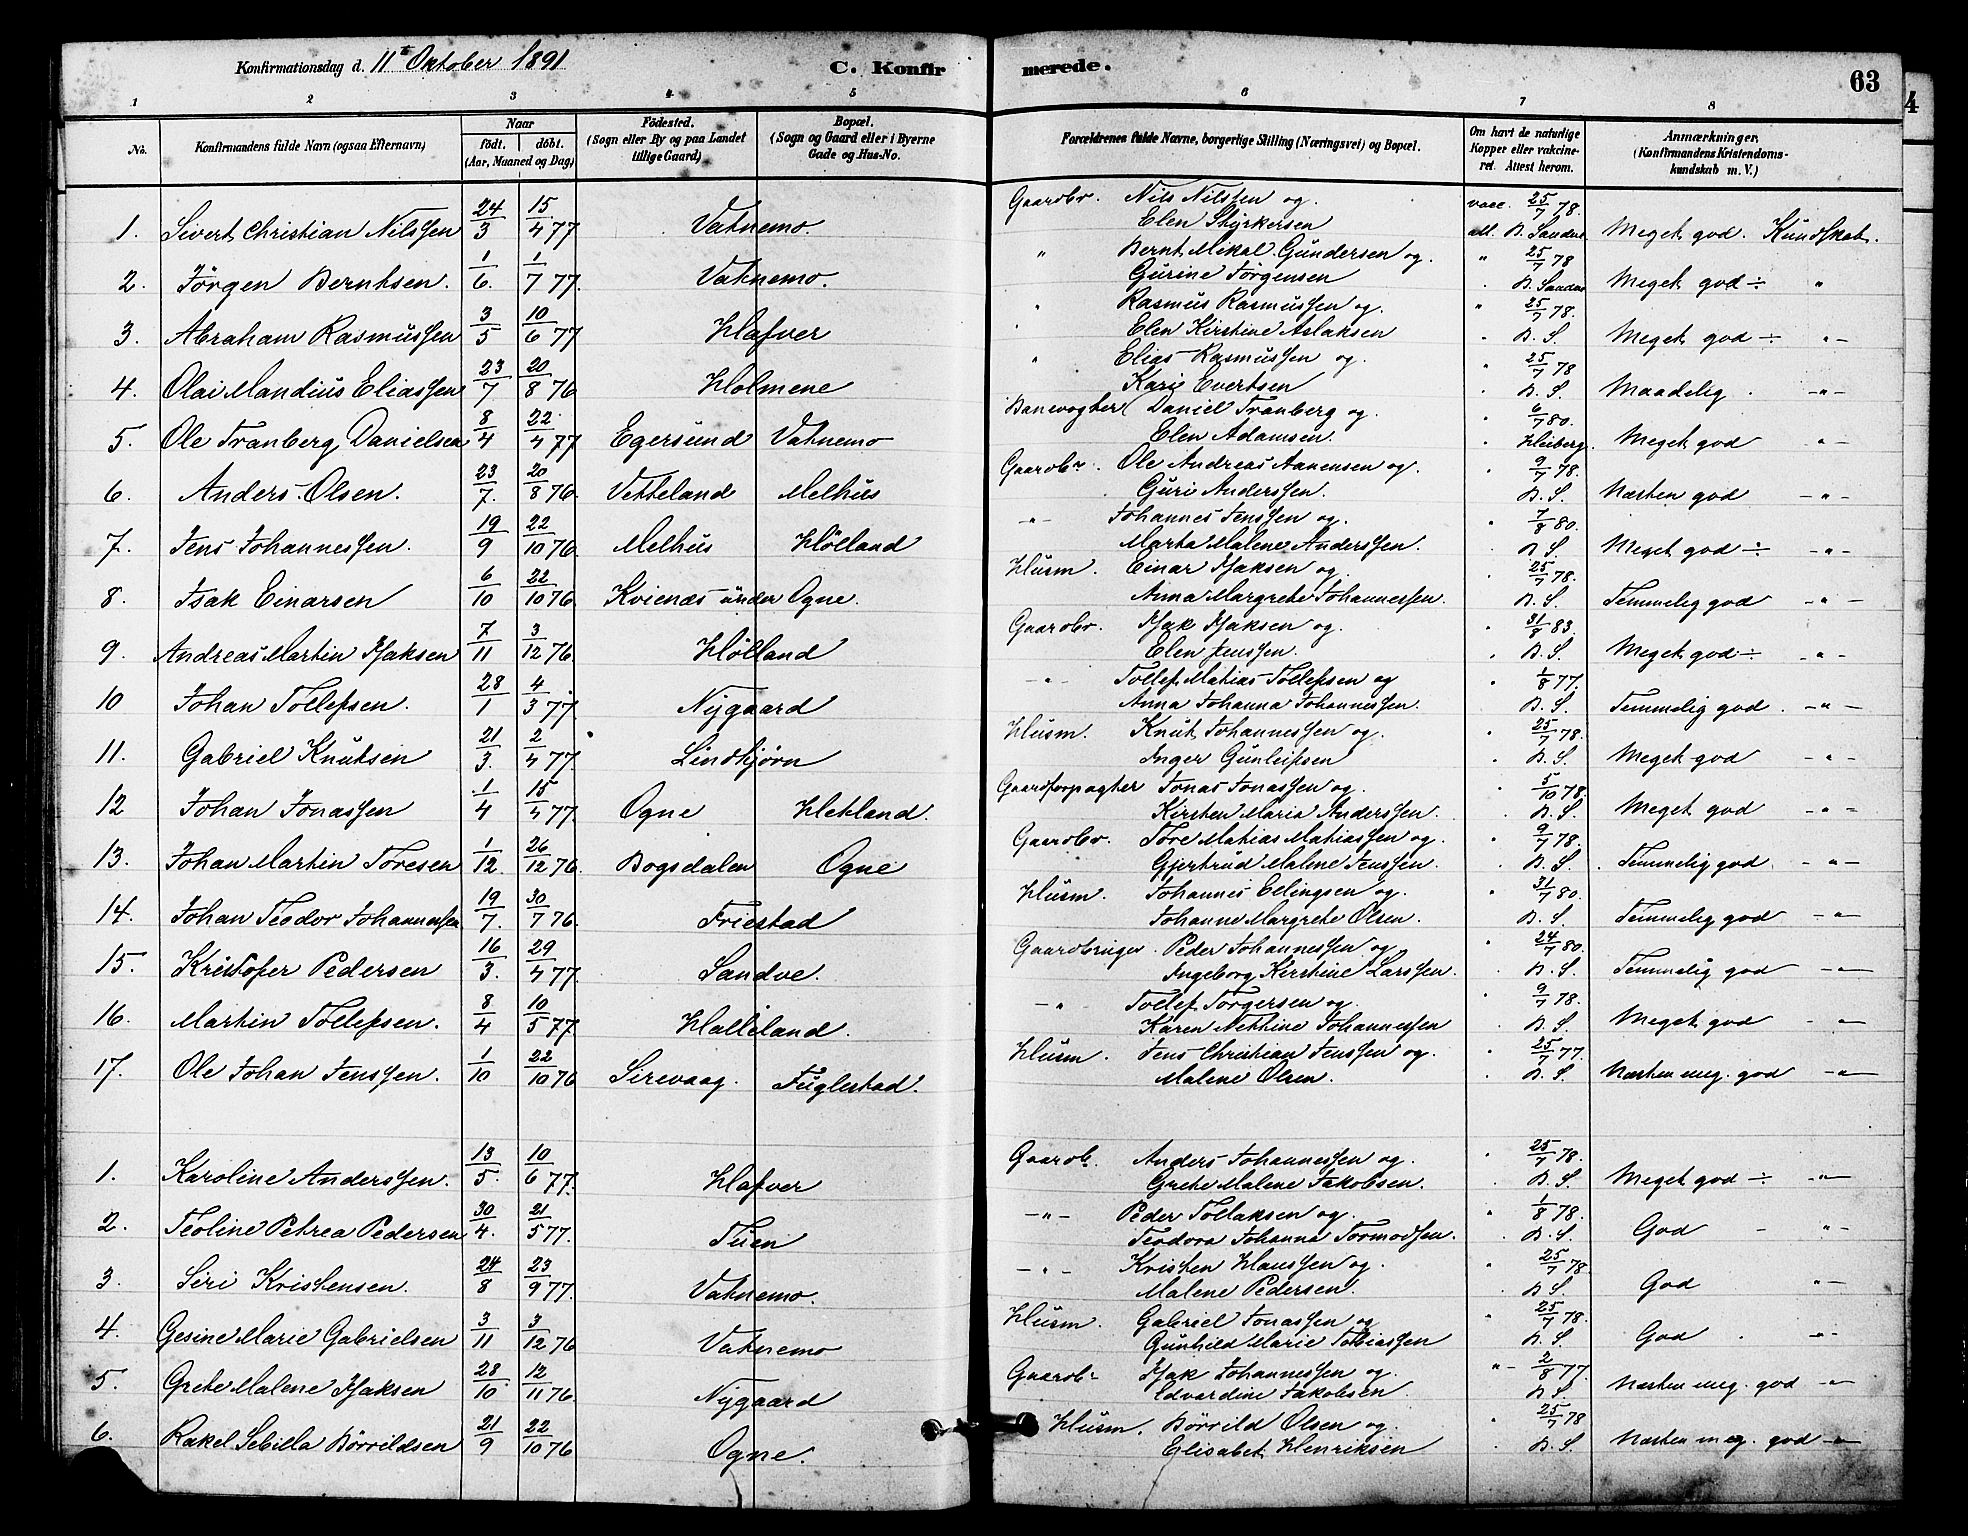 Konfirmationsdag d. 11te Oktober 1891 C. Konfirmerede. 63
1 2 3 4 5 6 7 8
No. Konfirmandens fulde Navn (ogsaa Efternavn) Naar födt. döbt. (Aar, Maaned og Dag) Födested. (Sogn eller By og paa Landet tillige Gaard) Bopæl. (Sogn og Gaard eller i Byerne Gade og Hus-No. Forældrenes fulde Navne, borgerlige Stilling (Næringsvei) og Bopæl. Om havt de naturlige Kopper eller vakcineret. Attest herom. Anmærkninger, (Konfirmandens Kristendomskundskab m. V.)
1. Sivert Christian Nilssen 24/3 15/4 77 Vatnemo. Gaardbr. Nils Nilssen og Elen Styrkersen vacc. 25/7 78. att. B. Sandve Meget god. Kundskab.
2. Jörgen Berntsen. 1/6. 1/7 77. Vatnemo. " Bernt Mikal Gundersen og Gurine Jörgensen " 25/7 78 B. Sandve Meget god ÷ "
3. Abraham Rasmussen 3/5 10/6 77 Hafver " Rasmus Rasmussen og Elen Kirstine Aslaksen " 25/7 78. B. S. Meget god ÷ -"-
4. Olai Mandius Eliassen 23/7 20/8 76 Holmene " Elias Rasmussen og Karie Evertsen " 25/7 78 B. S. Maadelig. -"-
5. Ole Tranberg Danielsen 8/4 22/4 77 Egersund Vatnemo Banevogter Daniel Tranberg og Elen Adamsen. " 6/7 80. Heiberg. Meget god -"-
6. Anders Olsen. 23/7. 20/8 76. Vetteland Melhus Gaardbr. Ole Andreas Aanensen og Guri Anderssen. " 9/7 78. B. S. Næsten god -"-
7. Jens Johannessen. 19/9 22/10 76. Melhus Hölland -"- Johannes Jenssen og Marta Malene Anderssen. " 7/8 80. B. S. Meget god ÷ -"-
8. Isak Einarsen 6/10 22/10 76. Kvienæs under Ogne. Husm. Einar Isaksen og Anna Margrete Johannessen. " 25/7 78. B. S. Temmelig god -"-
9. Andreas Martin Isaksen 7/11 3/12 76. Hölland Gaardbr. Isak Isaksen og Elen Jenssen. " 31/8 83. B. S. Meget god ÷ -"-
10 Johan Tollefsen. 28/1 4/3 77. Nygaard -"- Tollef Matias Tollefsen og Anna Johanna Johannessen. " 1/8 77. B. S. Temmelig god. -"-
11. Gabriel Knutsen 21/3. 2/4 77. Lindtjørn Husm. Knut Johannessen og Inger Gunleifsen " 25/7 78. B. S. Meget god -"-
12 Johan Jonassen 1/4 15/4 77. Ogne Hetland. Gaardforpagter Jonas Jonassen og Kirsten Maria Anderssen. " 5/10 78. B. S. Meget god -"-
13. Johan Martin Toresen 1/12. 26/12 76. Bogsdalen Ogne Gaardbr. Tore Matias Matiassen og Gjertrud Malene Jenssen. " 9/7 78. B. S. Temmelig god -"-
14. Johan Teodor Johannessen 19/7. 30/7 76. Friestad Husm. Johannes Eelingsen og Johanne Margrete Olsen. " 31/7 80. B. S. Temmelig god -"-
15. Kristofer Pedersen 16/3. 29/4 77. Sandve. Gaardbruger Peder Johannessen og Ingeborg Kerstine Larssen. " 24/7 80. B. S. Temmelig god -"-
16. Martin Tollefsen. 8/4 10/5 77. Halleland. -"- Tollef Torgersen og Karen Nettine Johannessen " 9/7 78. B. S. Meget god -"-
17. Ole Johan Jenssen. 1/10 22/10 76 Sirevaag. Fuglestad. Husm. Jens Christian Jenssen og Malene Olsen. " 25/7 77. B. S. Næsten meg. god -"-
1. Karoline Anderssen. 13/5. 10/6 77. Hafver Gaardb. Anders Johannessen og Grete Malene Jakobsen. " 25/7 78. B. S. Meget god ÷ -"-
2. Teoline Petrea Pedersen 30/4. 21/5 77. Tuen -"- Peder Tollaksen og Teodora Johanna Tormodsen. " 1/8 78. B. S. God - -"-
3. Siri Kristensen. 24/8 23/9 77. Vatnemo. -"- Kristen Hanssen og Malene Pedersen. " 25/7 78. B. S. God -"-
4. Gesine Marie Gabrielsen 3/11 3/12 76 Vatnemo Husm. Gabriel Jonassen og Gunhild Marie Tobiassen " 25/7 78. B. S. God. -"-
5. Grete Malene Isaksen 28/10. 12/11 76. Nygaard Gaardbr. Isak Johannessen og Edvardine Jakobsen. " 2/8 77. B. S. Næsten meg. god -"-
6. Rakel Sebilla Börrildsen 21/9 22/10 76 Ogne. Husm. Börrild Olsen og Elisabet Henriksen " 25/7 78 B. S. Næsten meg. god -"-
4